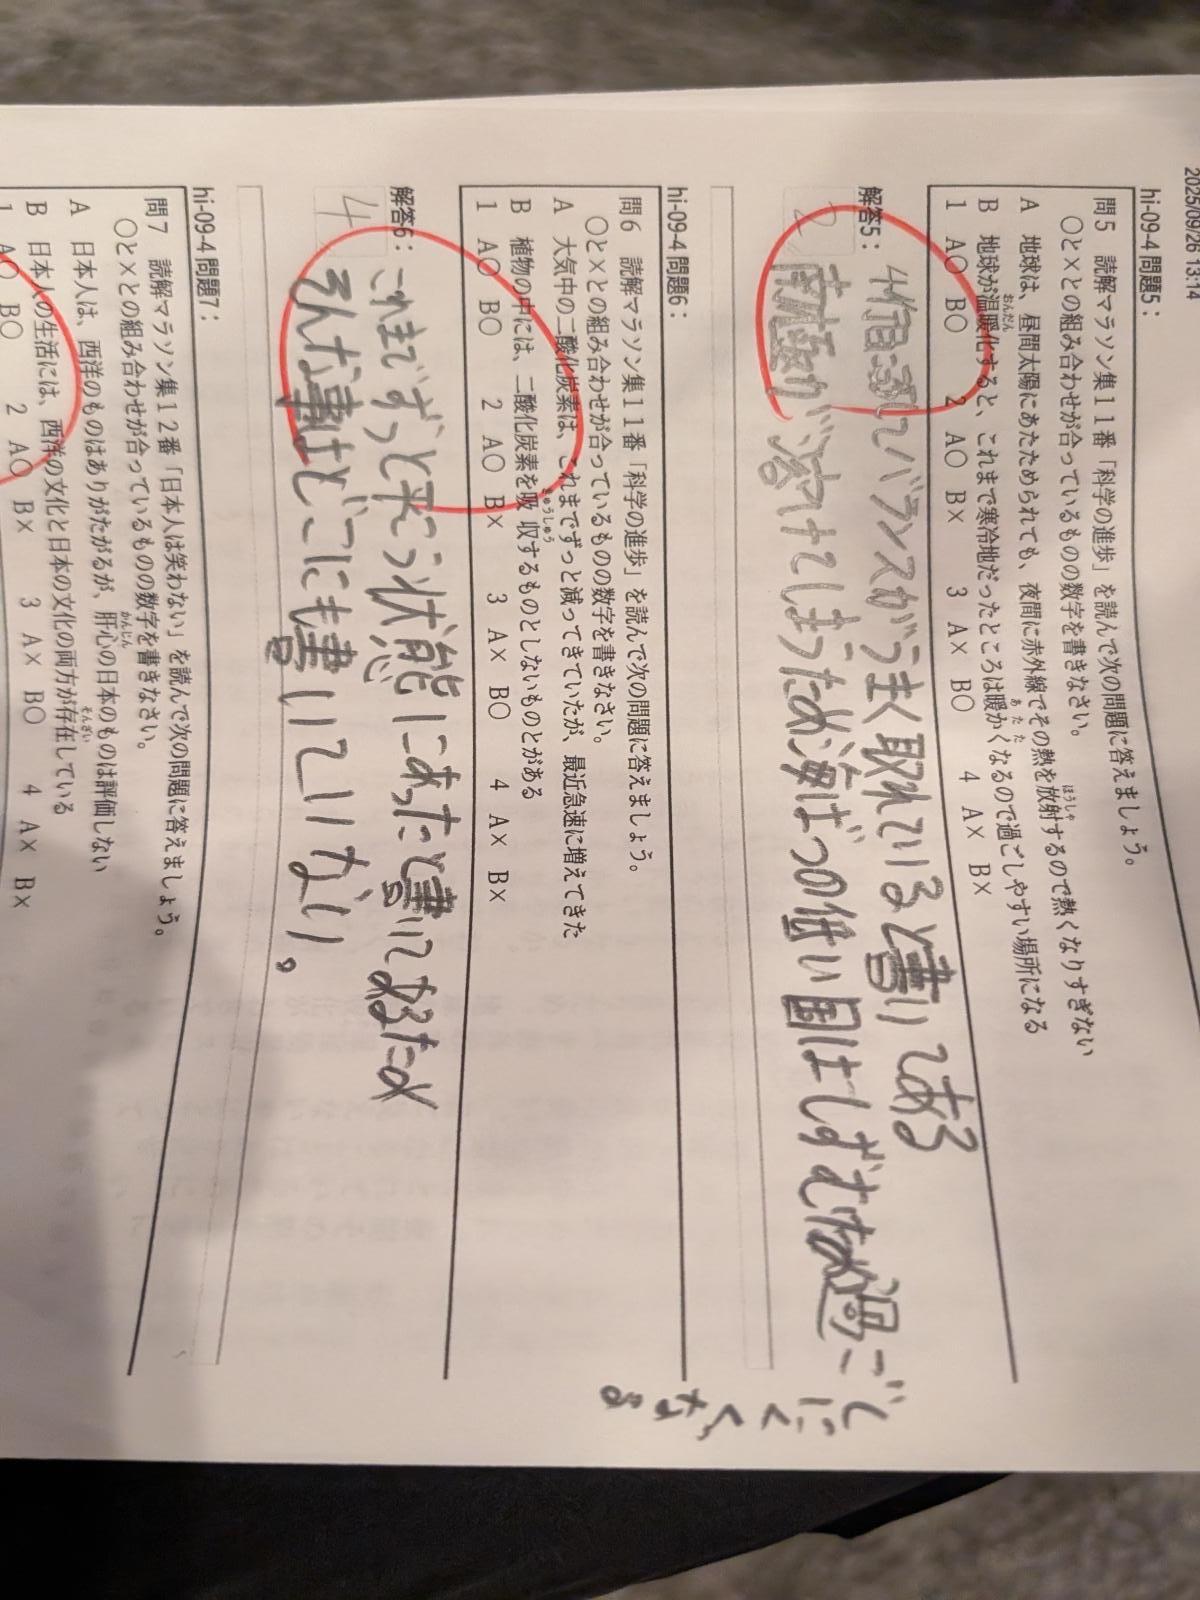 2025/09/26 13:14
hi-09-4 問題5：
問5 読解マラソン集11番「科学の進歩」を読んで次の問題に答えましょう。
○と×との組み合わせが合っているものの数字を書きなさい。
A 地球は、昼間太陽にあたためられても、夜間に赤外線でその熱を放射するので熱くなりすぎない
ほうしゃ
B 地球が温暖化すると、これまで寒冷地だったところは暖かくなるので過ごしやすい場所になる
おんだん
あたた
1 A○ B○ 2 A○ B× 3 A× B○ 4 A× B×
解答5：
2
バランスがうまく取れていると書いてある
南極が溶けてしまうため海ばつの低い国はしずむため過ごし
にくくなる
hi-09-4 問題6：
問6 読解マラソン集11番「科学の進歩」を読んで次の問題に答えましょう。
○と×との組み合わせが合っているものの数字を書きなさい。
A 大気中の二酸化炭素は、これまでずっと減ってきていたが、最近急速に増えてきた
B 植物の中には、二酸化炭素を吸収するものとしないものとがある
きゅうしゅう
1 A○ B○ 2 A○ B× 3 A× B○ 4 A× B×
解答6：
4
これまでずっと平こう状態にあったと書いてあるため
そんな事はどこにも書いていない。
hi-09-4 問題7：
問7 読解マラソン集12番「日本人は笑わない」を読んで次の問題に答えましょう。
○と×との組み合わせが合っているものの数字を書きなさい。
A 日本人は、西洋のものはありがたがるが、肝心の日本のものは評価しない
かんじん
B 日本人の生活には、西洋の文化と日本の文化の両方が存在している
そんざい
1 A○ B○ 2 A○ B× 3 A× B○ 4 A× B×